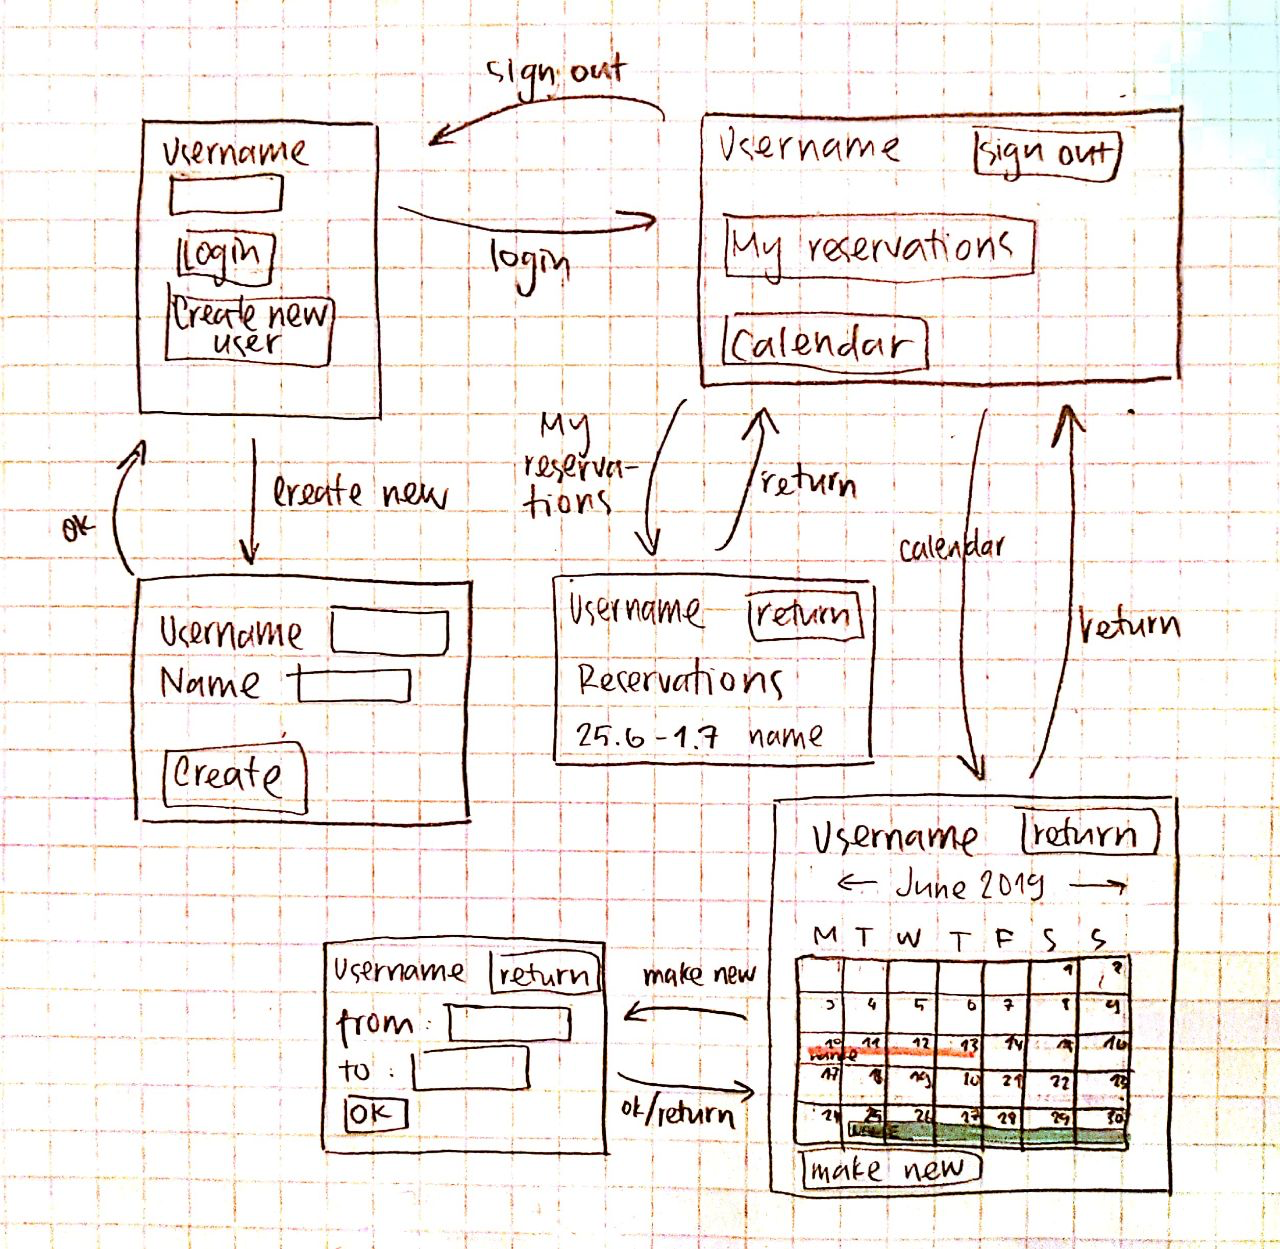 sign out
Username
Login
Create new
user
login
Username
sign out
My reservations
Calendar
ok
Create new
My
reserva-
tions
return
calendar
return
Username
Name
Create
Username
return
Reservations
25.6-1.7 name
Username
return
← June 2019 →
M T W T F S S
1 2
3 4 5 6 7 8 9
10 11 12 13 14 15 16
name
17 18 19 20 21 22 23
24 25 26 27 28 29 30
make new
Username
return
from:
to:
OK
make new
ok/return